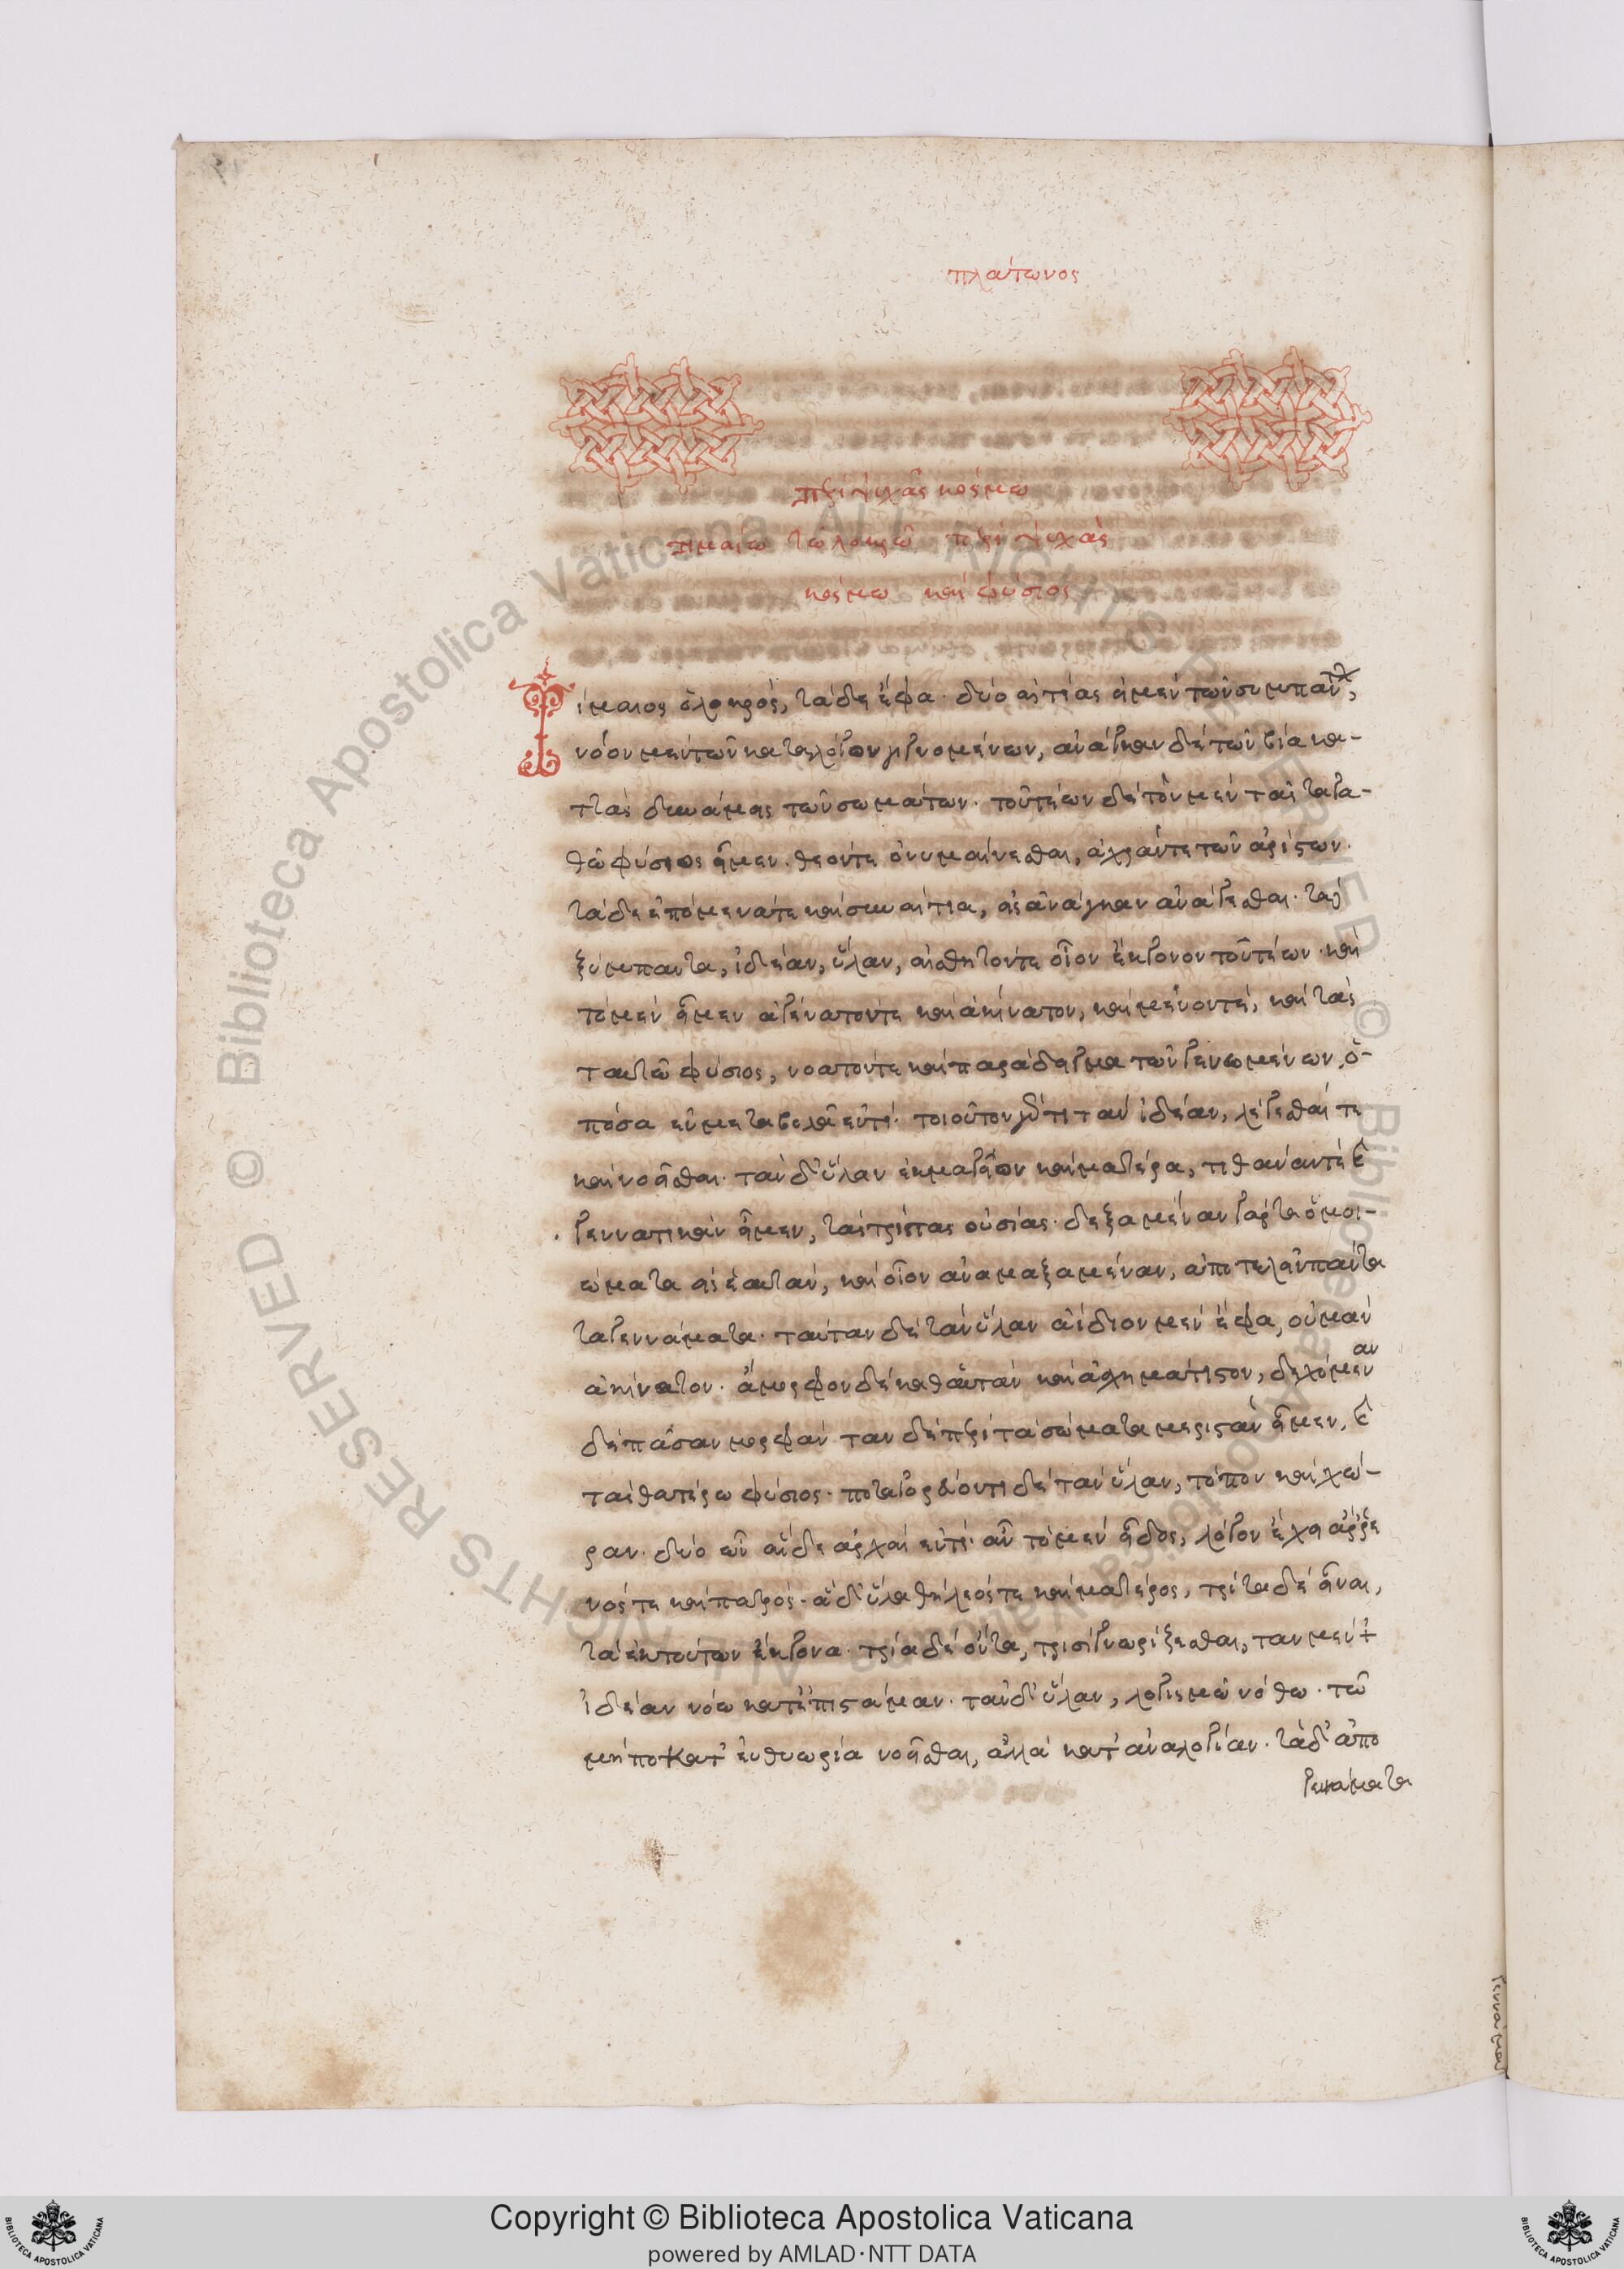 πλάτωνος
περὶ ψυχᾶς κόσμω
Τιμαίω τῶ λοκρῶ περὶ ψυχᾶς
κόσμω καὶ φύσιος
Τίμαιος ὁ λοκρός, τάδε ἔφα· δύο αἰτίας εἶμεν τῶν συμπάντων,
νόον μὲν τῶν κατὰ λόγον γιγνομένων, ἀνάγκαν δὲ τῶν βία κα-
τὰς δυνάμεις τῶν σωμάτων. τουτέων δὲ τὸν μὲν τᾶς τἀγα-
θῶ φύσιος εἶμεν. θεόντε ὀνυμαίνεσθαι, ἀρχάντε τῶν ἀρίστων.
τὰ δὲ ἑπόμενάτε καὶ συναίτια, εἰς ἀνάγκαν ἀνάγεσθαι. τὰ δὲ
ξύμπαντα, ἰδέαν, ὕλαν, αἰσθητόντε οἷον ἔκγονον τουτέων. καὶ
τὸ μὲν εἶμεν ἀγένατόντε καὶ ἀκίνατον, καὶ μένοντέ, καὶ τᾶς
ταυτῶ φύσιος, νοατόντε καὶ παράδειγμα τῶν γενωμένων, ὁ-
πόσα ἐν μεταβολᾶ ἐντί. τοιοῦτον γάρ τι τὰν ἰδέαν, λέγεσθαί τε
καὶ νοεῖσθαι. τὰν δ' ὕλαν ἐκμαγεῖον καὶ ματέρα, τιθάναντε καὶ
γεννατικὰν εἶμεν, τᾶς τρίτας οὐσίας. δεξαμέναν γὰρ τὰ ὁμοι-
ώματα εἰς ἑαυτὰν, καὶ οἷον ἀναμαξαμέναν, ἀποτελεῖν πάντα
τὰ γεννάματα. ταύταν δὲ τὰν ὕλαν ἀΐδιον μὲν ἔφα, οὐ μὰν
ἀκίνατον. ἄμορφον δὲ καθ' αὑτὰν καὶ ἀσχημάτιστον, δεχομέναν
δὲ πᾶσαν μορφάν τὰν δὲ περὶ τὰ σώματα μεριστὰν εἶμεν, καὶ
τᾶς θατέρω φύσιος. ποταγορεύοντι δὲ τὰν ὕλαν, τόπον καὶ χώ-
ραν. δύο ὦν αἵδε ἀρχαὶ ἐντί. ἇν τὸ μὲν εἶδος, λόγον ἔχει ἄρρε
νός τε καὶ πατρός. ἁ δ' ὕλα θήλεός τε καὶ ματέρος, τρίτα δὲ εἶναι,
τὰ ἐκ τούτων ἔκγονα. τρία δὲ ὄντα, τρισὶ γνωρίζεσθαι, τὰν μὲν
ἰδέαν νόω κατ' ἐπιστάμαν. τὰν δ' ὕλαν, λογισμῶ νόθω. τῶ
μήπο κατ' εὐθυωρία νοεῖσθαι, ἀλλὰ κατ' ἀναλογίαν. τὰ δ' ἀπο
γεννάματα